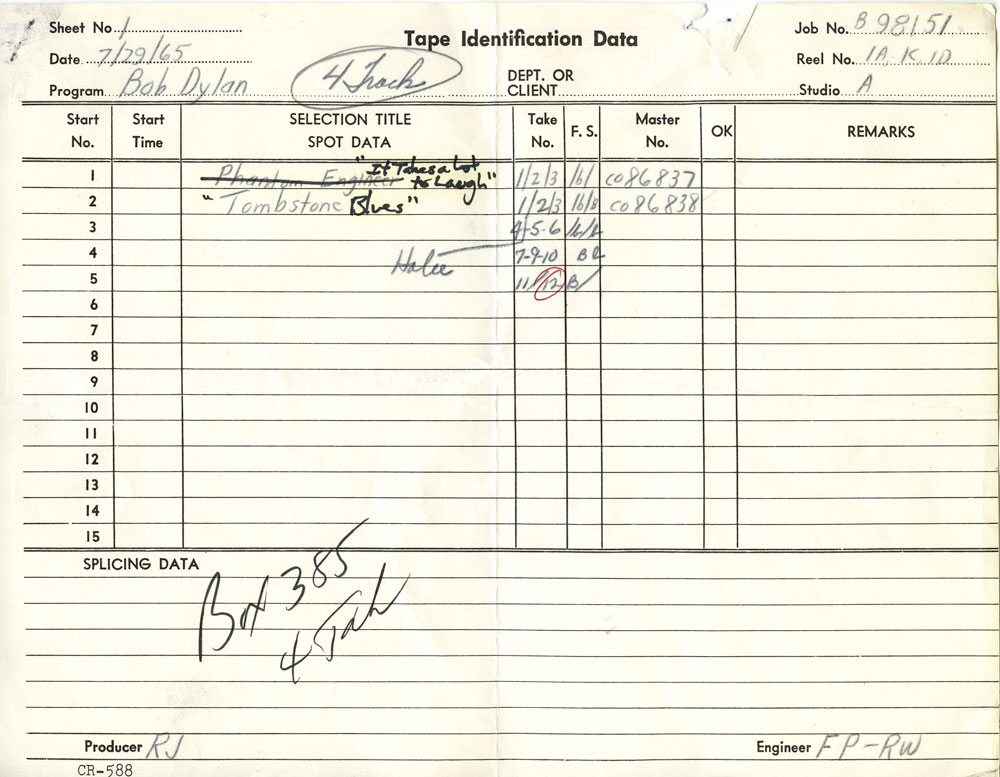 Sheet No. 1
Tape Identification Data
Job No. B 98151
Date 7/29/65
Reel No. 1A, K, 1D
Program Bob Dylan
4 Track
DEPT. OR CLIENT
Studio A
Start No. Start Time SELECTION TITLE SPOT DATA Take No. F. S. Master No. OK REMARKS
1 Phantom Engineer "It Takes a Lot to Laugh" 1/2/3 /b/ co86837
2 "Tombstone Blues" 1/2/3 co86838
3 4-5-6
4 Halee 7-9-10
5 11/12 B/
6
7
8
9
10
11
12
13
14
15
SPLICING DATA
Box 385
4
Producer RJ
Engineer FP-RW
CR-588